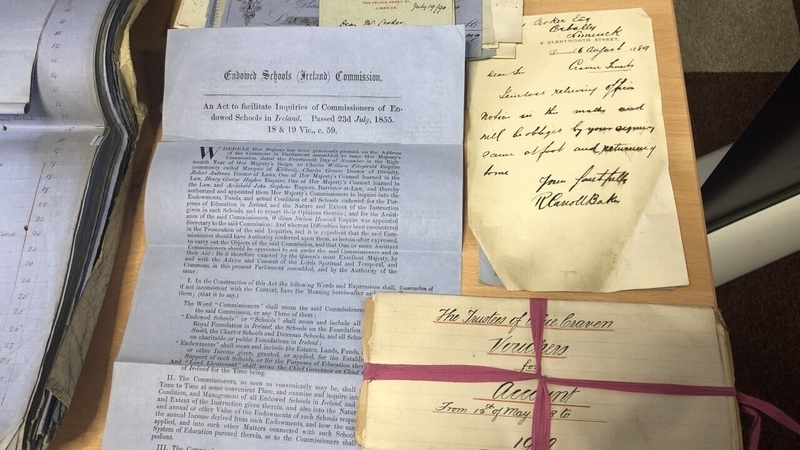 THE PALACE, HENRY ST.
LIMERICK.
July 19/90
Dear Mr. Croker
Endowed Schools (Ireland) Commission.
An Act to facilitate Inquiries of Commissioners of En-
dowed Schools in Ireland. Passed 23d July, 1855.
18 & 19 Vic., c. 59.
WHEREAS Her Majesty has been graciously pleased on the Address
of the Commons in Parliament assembled to issue Her Majesty's
Commission dated the Fourteenth Day of November in the Eigh-
teenth Year of Her Majesty's Reign, to Charles William Fitzgerald Esquire
(commonly called Marquis of Kildare), Charles Graves Doctor of Divinity,
Robert Andrews Doctor of Laws, One of Her Majesty's Counsel learned in the
Law, Henry George Hughes Esquire, One of Her Majesty's Counsel learned in
the Law, and Archibald John Stephens Esquire, Barrister-at-Law, and thereby
authorized and appointed them Her Majesty's Commissioners to inquire into the
Endowments, Funds, and actual Condition of all Schools endowed for the Pur-
poses of Education in Ireland, and the Nature and Extent of the Instruction
given in such Schools, and to report their Opinions thereon; and for the Assist-
ance of the said Commissioners, William Neilson Hancock Esquire was appointed
Secretary to the said Commission: And whereas Difficulties have been encountered
in the Prosecution of the said Inquiries, and it is expedient that the said Com-
missioners should have Authority conferred upon them, as herein-after expressed,
to carry out the Objects of the said Commission, and that One or more Assistant
Commissioners should be appointed to act under the said Commissioners and in
their Aid: Be it therefore enacted by the Queen's most Excellent Majesty, by
and with the Advice and Consent of the Lords Spiritual and Temporal, and
Commons, in this present Parliament assembled, and by the Authority of the
same:
I. In the Construction of this Act the following Words and Expressions shall, Construction of
if not inconsistent with the Context, have the Meaning herein-after
them; (that is to say,)
The Word "Commissioners" shall mean the said Commissioners
the said Commission, or any Three of them;
"Endowed Schools" or "Schools" shall mean and include all
Royal Foundation in Ireland, the Schools on the Foundation
Smith, the Charter Schools and Diocesan Schools, and all Sch
on charitable or public Foundations in Ireland;
"Endowments" shall mean and include the Estates, Lands, Funds,
or other Income given, granted, or applied, for the Establish
Support of such Schools, or for the Purposes of Education the
And "Lord Lieutenant" shall mean the Chief Governor or Chief
of Ireland for the Time being.
II. The Commissioners, so soon as conveniently may be, shall
Time to Time at some convenient Place, and examine and inquire into
Condition, and Management of all Endowed Schools in Ireland, and
and Extent of the Instruction given therein, and also into the Nature
and annual or other Value of the Endowments of such Schools respec
the annual Income derived from such Endowments, and how the same
applied, and into such other Matters connected with such School
System of Education pursued therein, as to the Commissioners shall
pedient.
III. The Comm
Croker Esq
Limerick
5 GLENTWORTH STREET,
6 August 1889
Dear Sir
Craven Trusts
Enclose relieving office
Notion in this matter and
will be obliged by your signing
same at foot and returning
to me
Yours faithfully
R Carroll Baker
The Trustees of Craven
Vouchers
for
Account
From 1st of May to